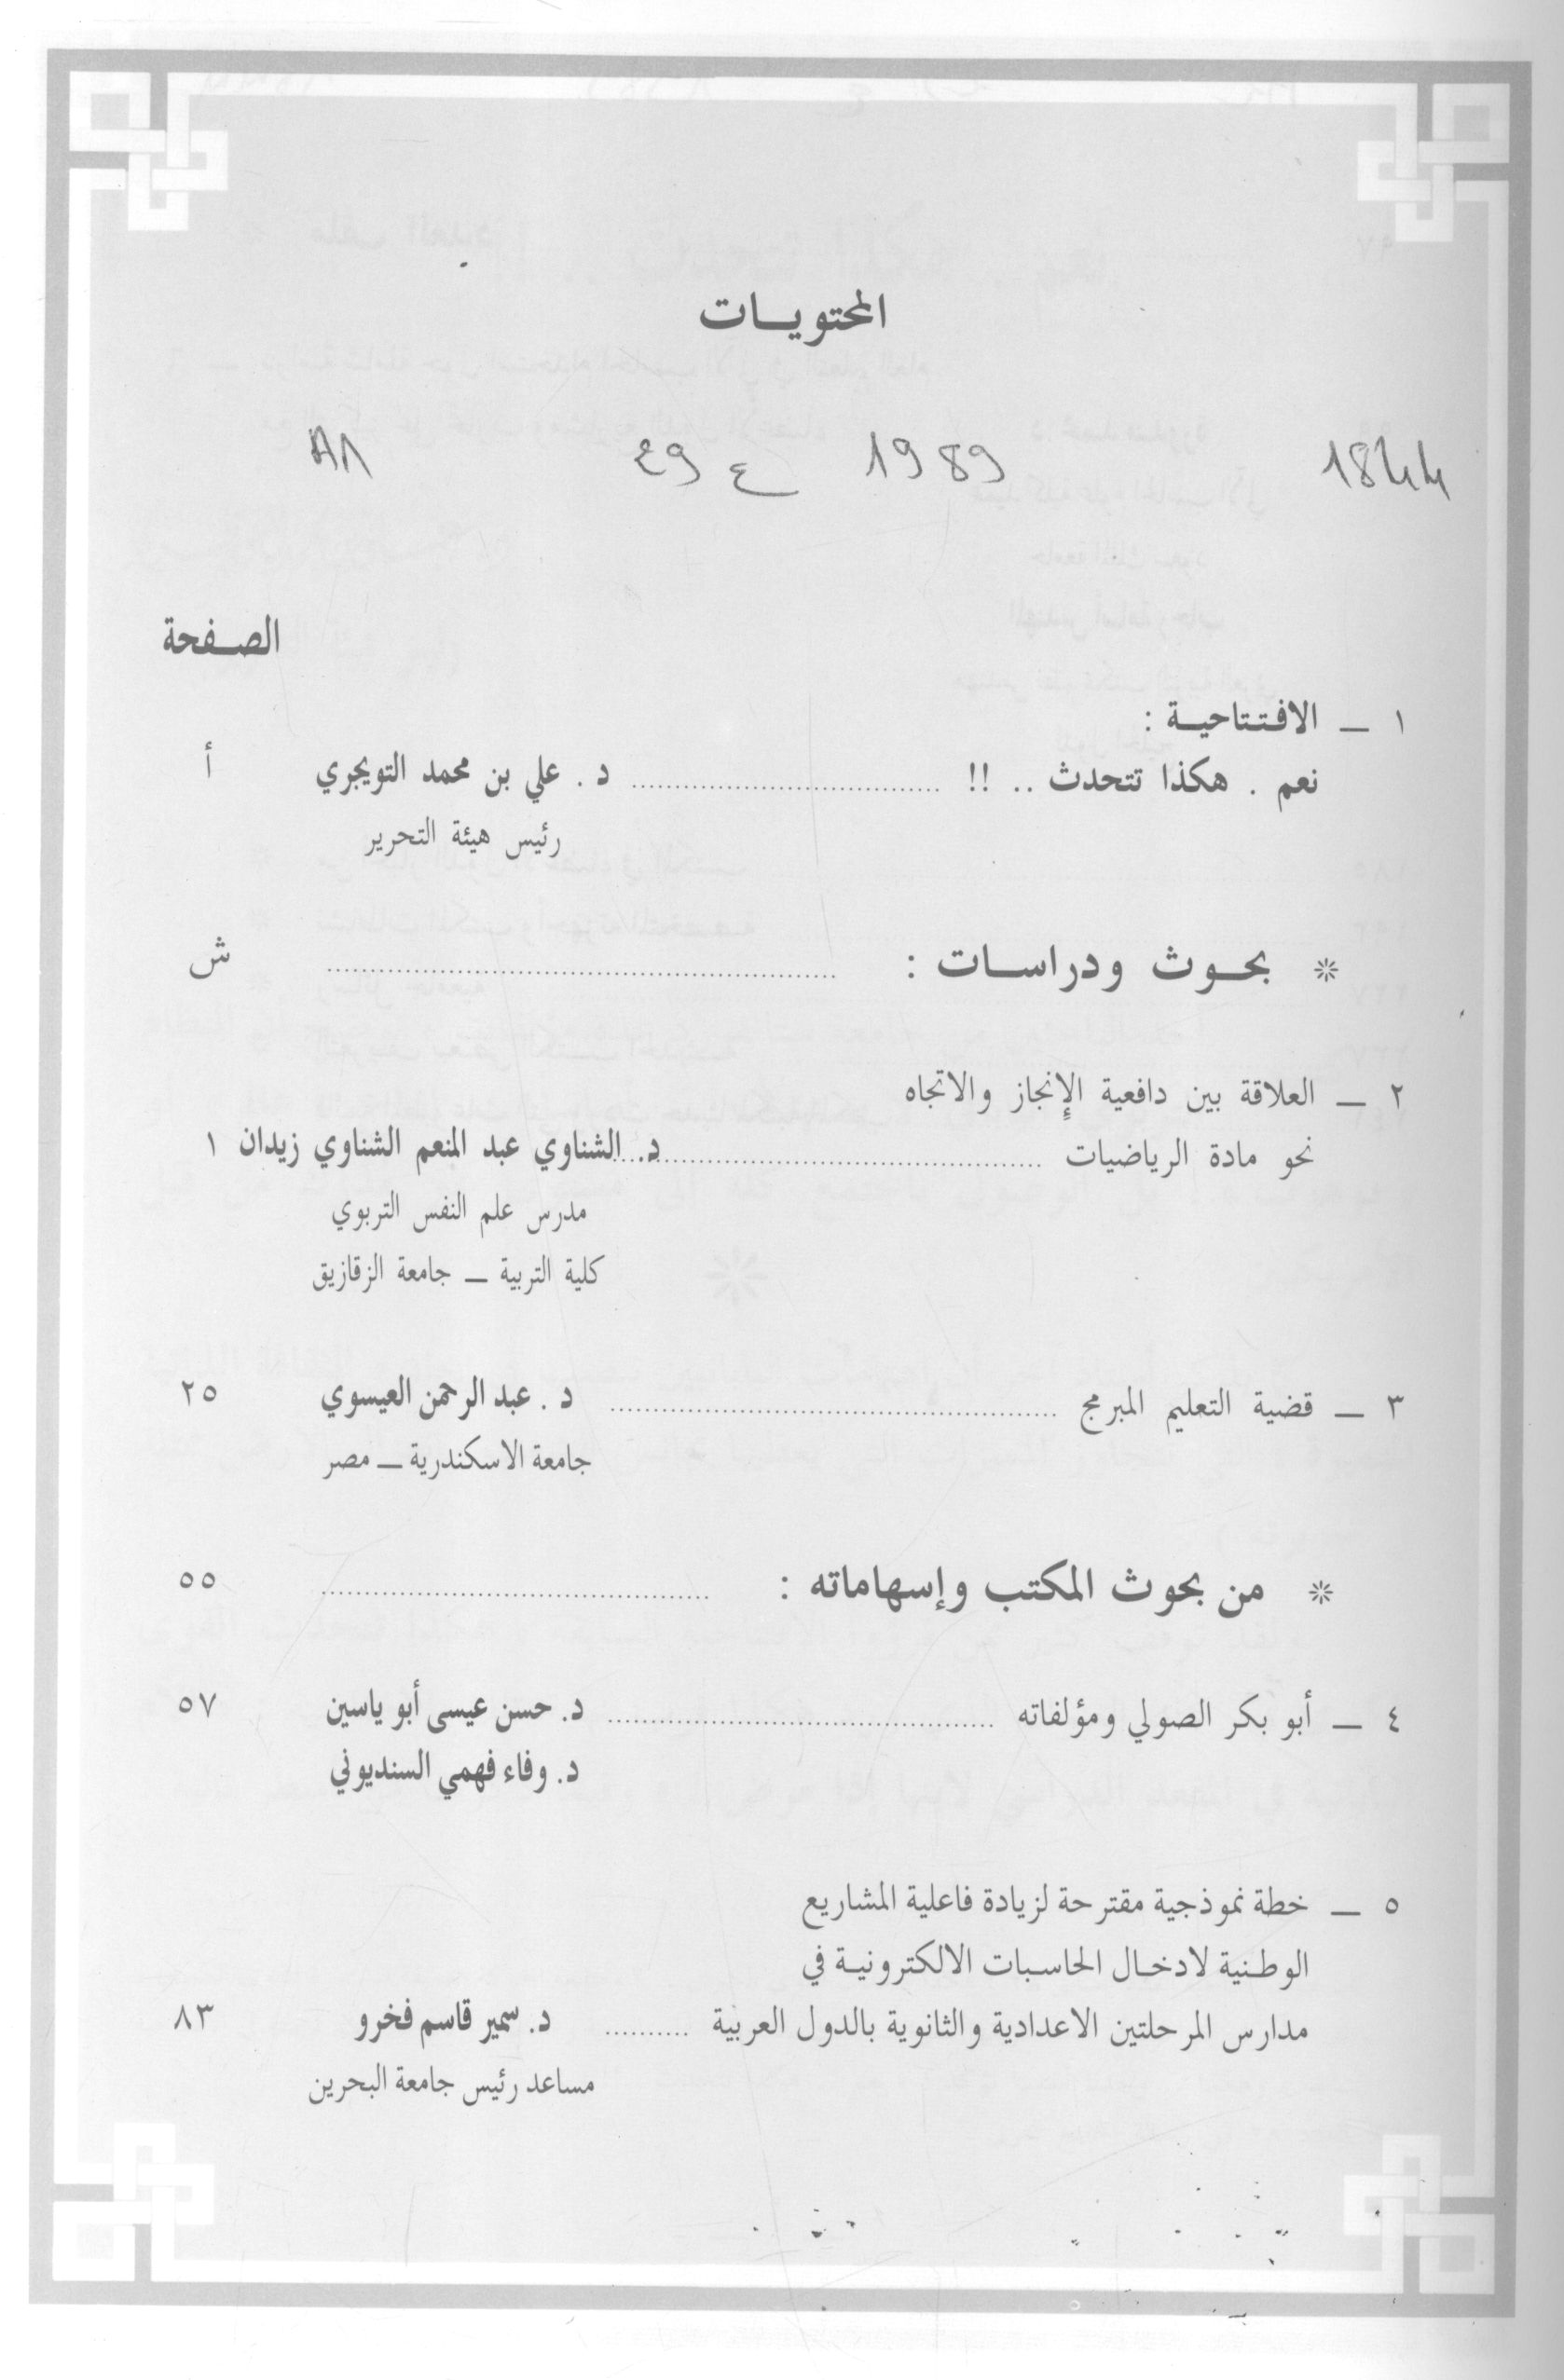 المحتويات
1989 ع 29
الصفحة
١ ــ الافتتاحية :
نعم . هكذا تتحدث .. !! ........ د . علي بن محمد التويجري أ
رئيس هيئة التحرير
* بحوث ودراسات : ........ ش
٢ ــ العلاقة بين دافعية الإنجاز والاتجاه
نحو مادة الرياضيات ........ د. الشناوي عبد المنعم الشناوي زيدان ١
مدرس علم النفس التربوي
كلية التربية ــ جامعة الزقازيق
٣ ــ قضية التعليم المبرمج ........ د . عبد الرحمن العيسوي ٢٥
جامعة الاسكندرية ــ مصر
* من بحوث المكتب وإسهاماته : ........ ٥٥
٤ ــ أبو بكر الصولي ومؤلفاته ........ د. حسن عيسى أبو ياسين ٥٧
د. وفاء فهمي السنديوني
٥ ــ خطة نموذجية مقترحة لزيادة فاعلية المشاريع
الوطنية لادخال الحاسبات الالكترونية في
مدارس المرحلتين الاعدادية والثانوية بالدول العربية ........ د. سمير قاسم فخرو ٨٣
مساعد رئيس جامعة البحرين